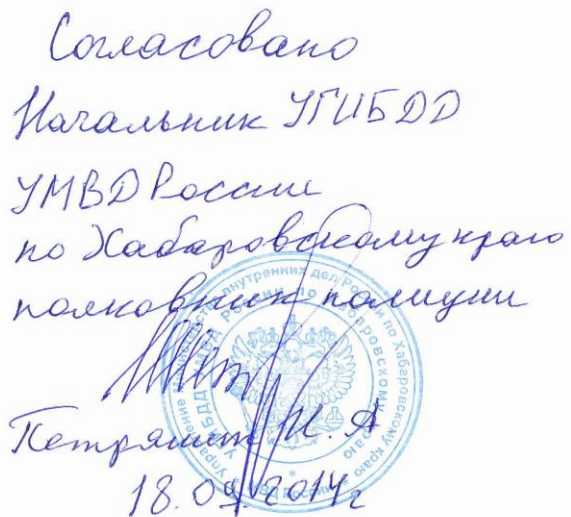 Согласовано
Начальник УГИБДД
УМВД России
по Хабаровскому краю
полковник полиции
И. А
18.09.2014г